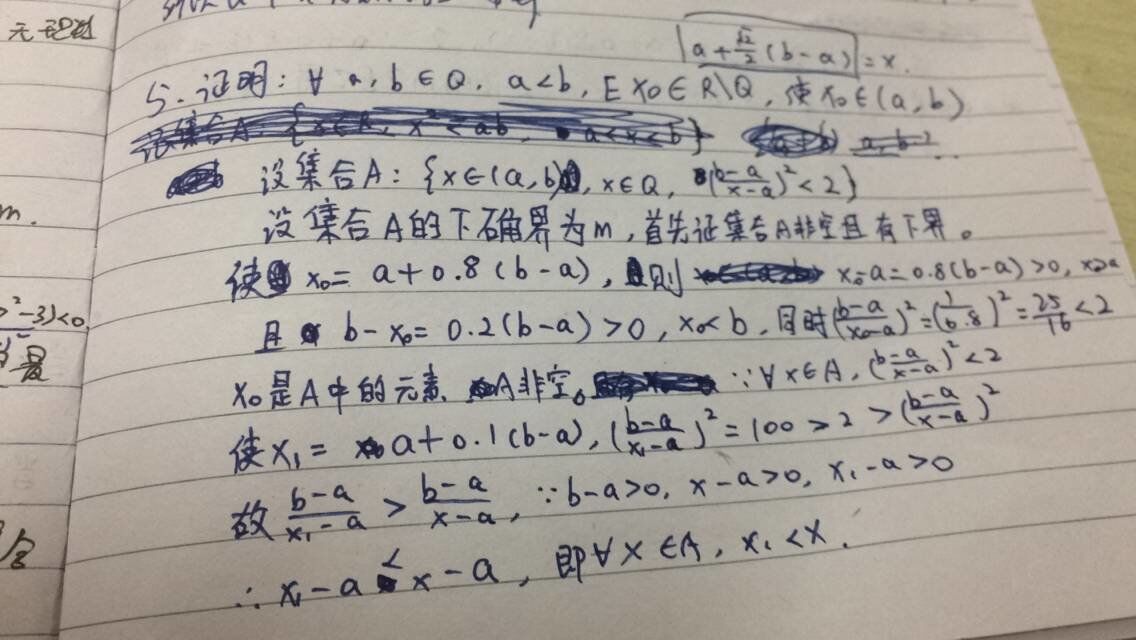 无理数
|a+√2/2(b-a)|=x.
5.证明:∀ a,b∈Q, a<b, E x₀∈R\Q, 使x₀∈(a,b)
设集合A:{x∈(a,b), x∈Q, (b-a/x-a)²<2}
m.
设集合A的下确界为m,首先证集合A非空且有下界。
使 x₀=a+0.8(b-a), 则 x₀-a=0.8(b-a)>0, x₀>a
²-3)<0
且 b-x₀=0.2(b-a)>0, x₀<b, 同时(b-a/x₀-a)²=(1/0.8)²=25/16<2
是
x₀是A中的元素. A非空。 ∵∀x∈A, (b-a/x-a)²<2
使x₁=a+0.1(b-a), (b-a/x₁-a)²=100>2>(b-a/x-a)²
故 b-a/x₁-a > b-a/x-a, ∵b-a>0, x-a>0, x₁-a>0
∴x₁-a<x-a, 即∀x∈A, x₁<x.